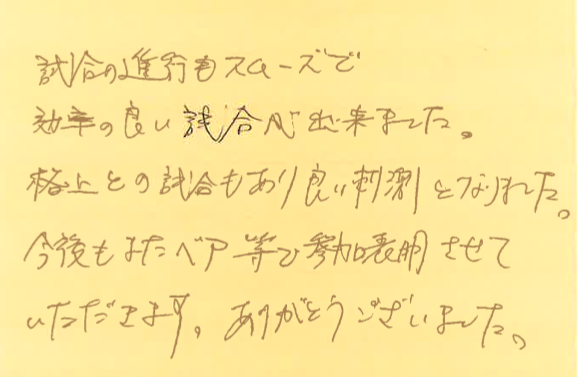 試合の進行もスムーズで
効率の良い試合が出来ました。
格上との試合もあり良い刺激となりました。
今後もまたペア等で参加表明させて
いただきます。ありがとうございました。